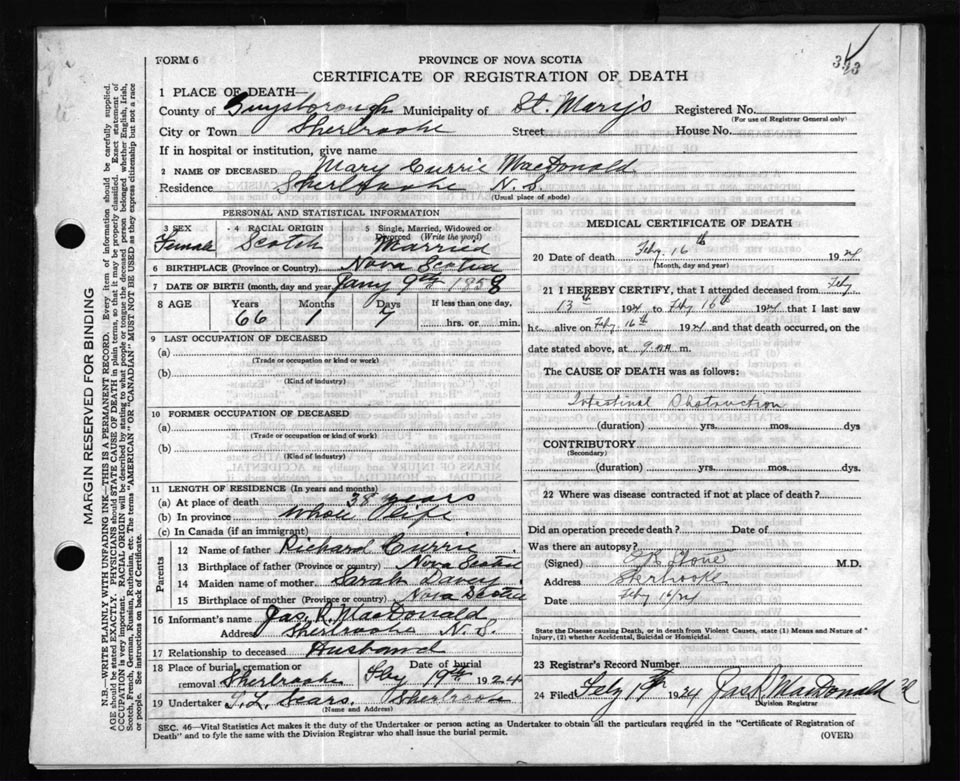 FORM 6
PROVINCE OF NOVA SCOTIA
CERTIFICATE OF REGISTRATION OF DEATH
1 PLACE OF DEATH—
County of Guysborough Municipality of St. Mary's Registered No.
(For use of Registrar General only)
City or Town Sherbrooke Street House No.
If in hospital or institution, give name
2 NAME OF DECEASED Mary Currie MacDonald
Residence Sherbrooke N. S.
(Usual place of abode)
PERSONAL AND STATISTICAL INFORMATION
3 SEX Female
4 RACIAL ORIGIN Scotch
5 Single, Married, Widowed or Divorced (Write the word) Married
6 BIRTHPLACE (Province or Country) Nova Scotia
7 DATE OF BIRTH (month, day and year) Jany 9th 1858
8 AGE Years Months Days If less than one day,
66 1 7 hrs. or min.
9 LAST OCCUPATION OF DECEASED
(a)
(Trade or occupation or kind or work)
(b)
(Kind of industry)
10 FORMER OCCUPATION OF DECEASED
(a)
(Trade or occupation or kind of work)
(b)
(Kind of industry)
11 LENGTH OF RESIDENCE (In years and months)
(a) At place of death 38 years
(b) In province Whole Life
(c) In Canada (if an immigrant)
Parents
12 Name of father Richard Currie
13 Birthplace of father (Province or country) Nova Scotia
14 Maiden name of mother Sarah Davey
15 Birthplace of mother (Province or country) Nova Scotia
16 Informant's name Jas. R. MacDonald
Address Sherbrooke N. S.
17 Relationship to deceased Husband
18 Place of burial, cremation or removal Sherbrooke Date of burial Feby 19th 1924
19 Undertaker Sherbrooke
(Name and Address)
MEDICAL CERTIFICATE OF DEATH
20 Date of death Feby. 16th 1924
(Month, day and year)
21 I HEREBY CERTIFY, that I attended deceased from Feby
13th 1924 to Feby 16th 1924 that I last saw
h alive on Feby 16th 1924 and that death occurred, on
date stated above, at 9 m.
The CAUSE OF DEATH was as follows:
Intestinal Obstruction
(duration) yrs. mos. dys
CONTRIBUTORY
(Secondary)
(duration) yrs. mos. dys.
22 Where was disease contracted if not at place of death?
Did an operation precede death? Date of
Was there an autopsy?
(Signed) M.D.
Address Sherbrooke
Date Feby 16/24
State the Disease causing Death, or in death from Violent Causes, state (1) Means and Nature of Injury, (2) whether Accidental, Suicidal or Homicidal.
23 Registrar's Record Number
24 Filed Feby 1924 Jas R MacDonald
Division Registrar
SEC. 46—Vital Statistics Act makes it the duty of the Undertaker or person acting as Undertaker to obtain all the particulars required in the "Certificate of Registration of
Death" and to fyle the same with the Division Registrar who shall issue the burial permit.
(OVER)
MARGIN RESERVED FOR BINDING
N.B.—WRITE PLAINLY WITH UNFADING INK—THIS IS A PERMANENT RECORD. Every item of information should be carefully supplied.
AGE should be stated EXACTLY. PHYSICIANS should STATE CAUSE OF DEATH in plain terms, so that it may be properly classified. Exact statement of
OCCUPATION is very important. RACIAL ORIGIN will be described by stating to what people or tongue the deceased person belonged whether English, Irish,
Scotch, French, German, Russian, Ruthenian, etc. The terms "AMERICAN" or "CANADIAN" MUST NOT BE USED as they express citizenship but not a race
or people. See instructions on back of Certificate.